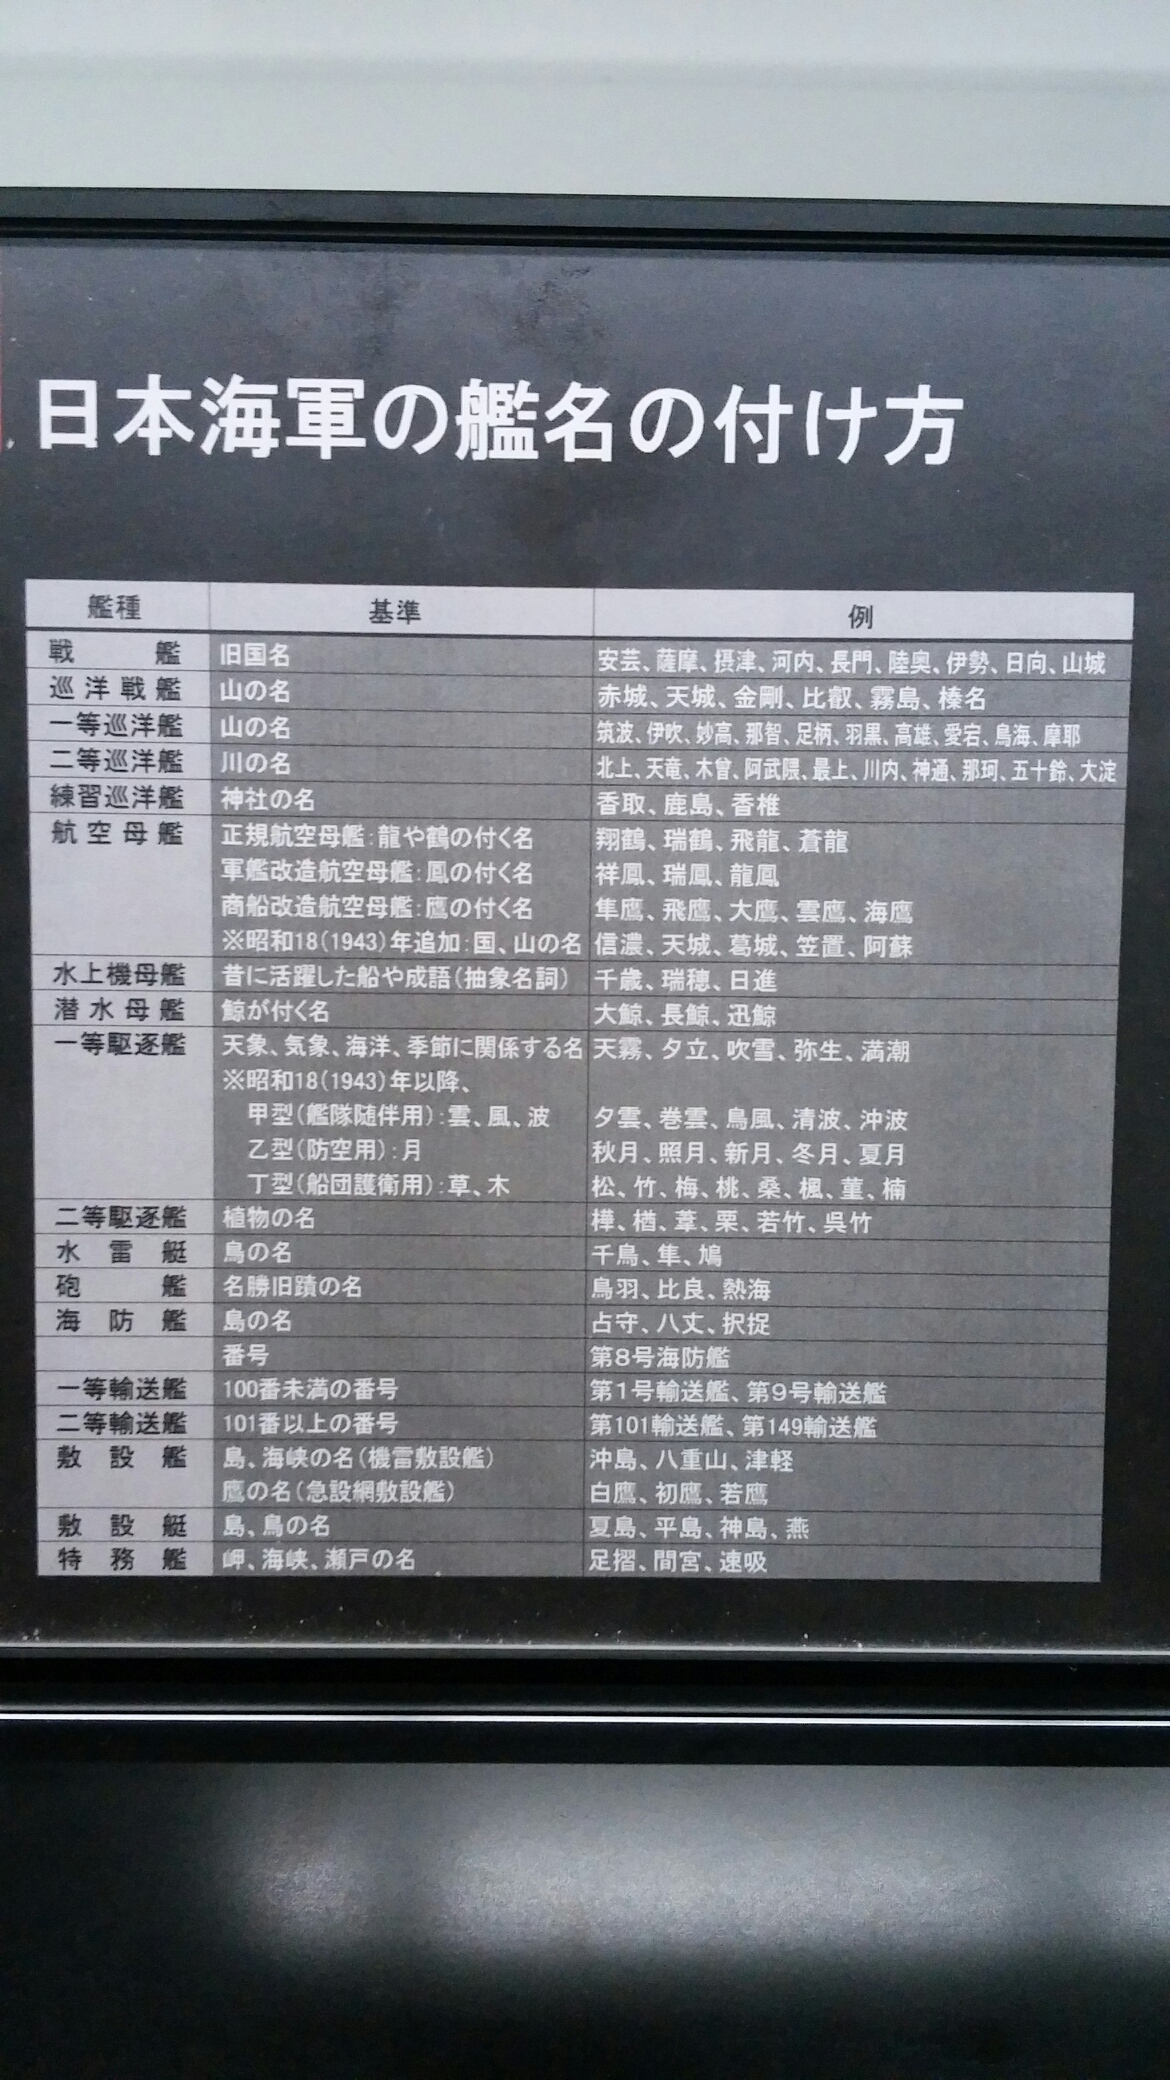 日本海軍の艦名の付け方
艦種 基準 例
戦艦 旧国名 安芸、薩摩、摂津、河内、長門、陸奥、伊勢、日向、山城
巡洋戦艦 山の名 赤城、天城、金剛、比叡、霧島、榛名
一等巡洋艦 山の名 筑波、伊吹、妙高、那智、足柄、羽黒、高雄、愛宕、鳥海、摩耶
二等巡洋艦 川の名 北上、天竜、木曾、阿武隈、最上、川内、神通、那珂、五十鈴、大淀
練習巡洋艦 神社の名 香取、鹿島、香椎
航空母艦 正規航空母艦:龍や鶴の付く名 翔鶴、瑞鶴、飛龍、蒼龍
軍艦改造航空母艦:鳳の付く名 祥鳳、瑞鳳、龍鳳
商船改造航空母艦:鷹の付く名 隼鷹、飛鷹、大鷹、雲鷹、海鷹
※昭和18(1943)年追加:国、山の名 信濃、天城、葛城、笠置、阿蘇
水上機母艦 昔に活躍した船や成語(抽象名詞) 千歳、瑞穂、日進
潜水母艦 鯨が付く名 大鯨、長鯨、迅鯨
一等駆逐艦 天象、気象、海洋、季節に関係する名 天霧、夕立、吹雪、弥生、満潮
※昭和18(1943)年以降、
甲型(艦隊随伴用):雲、風、波 夕雲、巻雲、島風、清波、沖波
乙型(防空用):月 秋月、照月、新月、冬月、夏月
丁型(船団護衛用):草、木 松、竹、梅、桃、桑、楓、菫、楠
二等駆逐艦 植物の名 樺、楢、葦、栗、若竹、呉竹
水雷艇 鳥の名 千鳥、隼、鳩
砲艦 名勝旧蹟の名 鳥羽、比良、熱海
海防艦 島の名 占守、八丈、択捉
番号 第8号海防艦
一等輸送艦 100番未満の番号 第1号輸送艦、第9号輸送艦
二等輸送艦 101番以上の番号 第101輸送艦、第149輸送艦
敷設艦 島、海峡の名(機雷敷設艦) 沖島、八重山、津軽
鷹の名(急設網敷設艦) 白鷹、初鷹、若鷹
敷設艇 島、鳥の名 夏島、平島、神島、燕
特務艦 岬、海峡、瀬戸の名 足摺、間宮、速吸